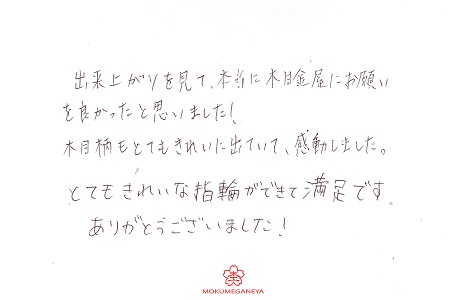 出来上がりを見て、本当に木目金屋にお願い
を良かったと思いました!
木目柄もとてもきれいに出ていて、感動しました。
とてもきれいな指輪ができて満足です。
ありがとうございました!
MOKUMEGANEYA